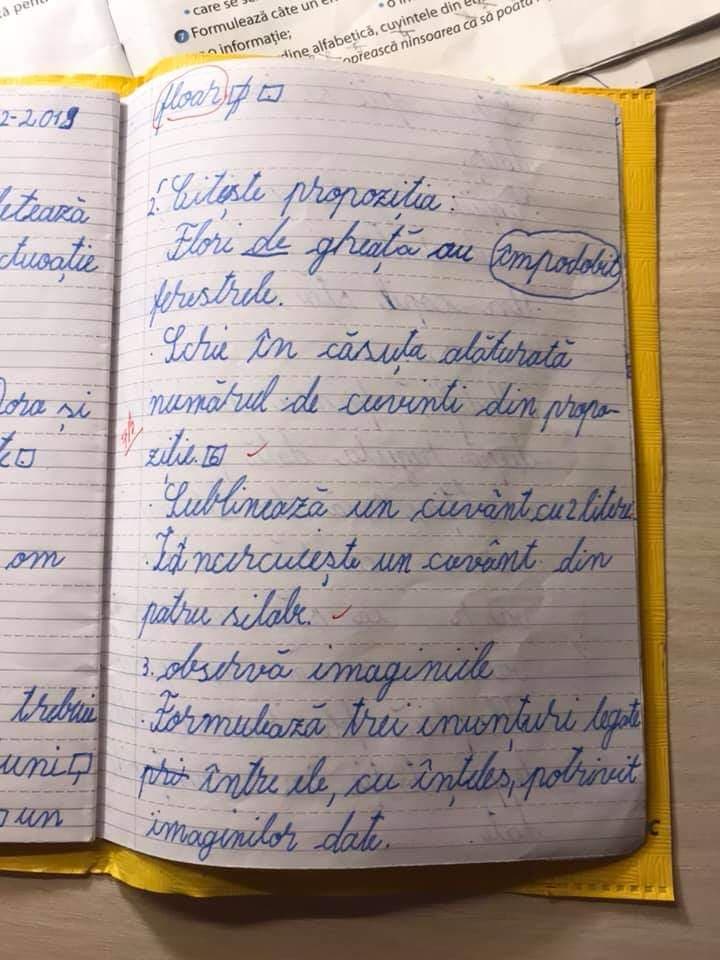 care se
7 Formulează câte un
o informație;
dine alfabetică, cuvintele din
oprească ninsoarea ca să poată
2-2019
letează
ctuație
Dora și
om
trebuie
uni
un
floar
2. Citește propoziția:
Flori de gheață au împodobit
ferestrele.
. Scrie în căsuța alăturată
numărul de cuvinti din propo-
ziție. 6
. Sublinează un cuvânt cu 2 litere
. Încercuiește un cuvânt din
patru silabe.
3. observă imaginiile
. Formulează trei enunțuri legate
între ele, cu înțeles, potrivit
imaginilor date.